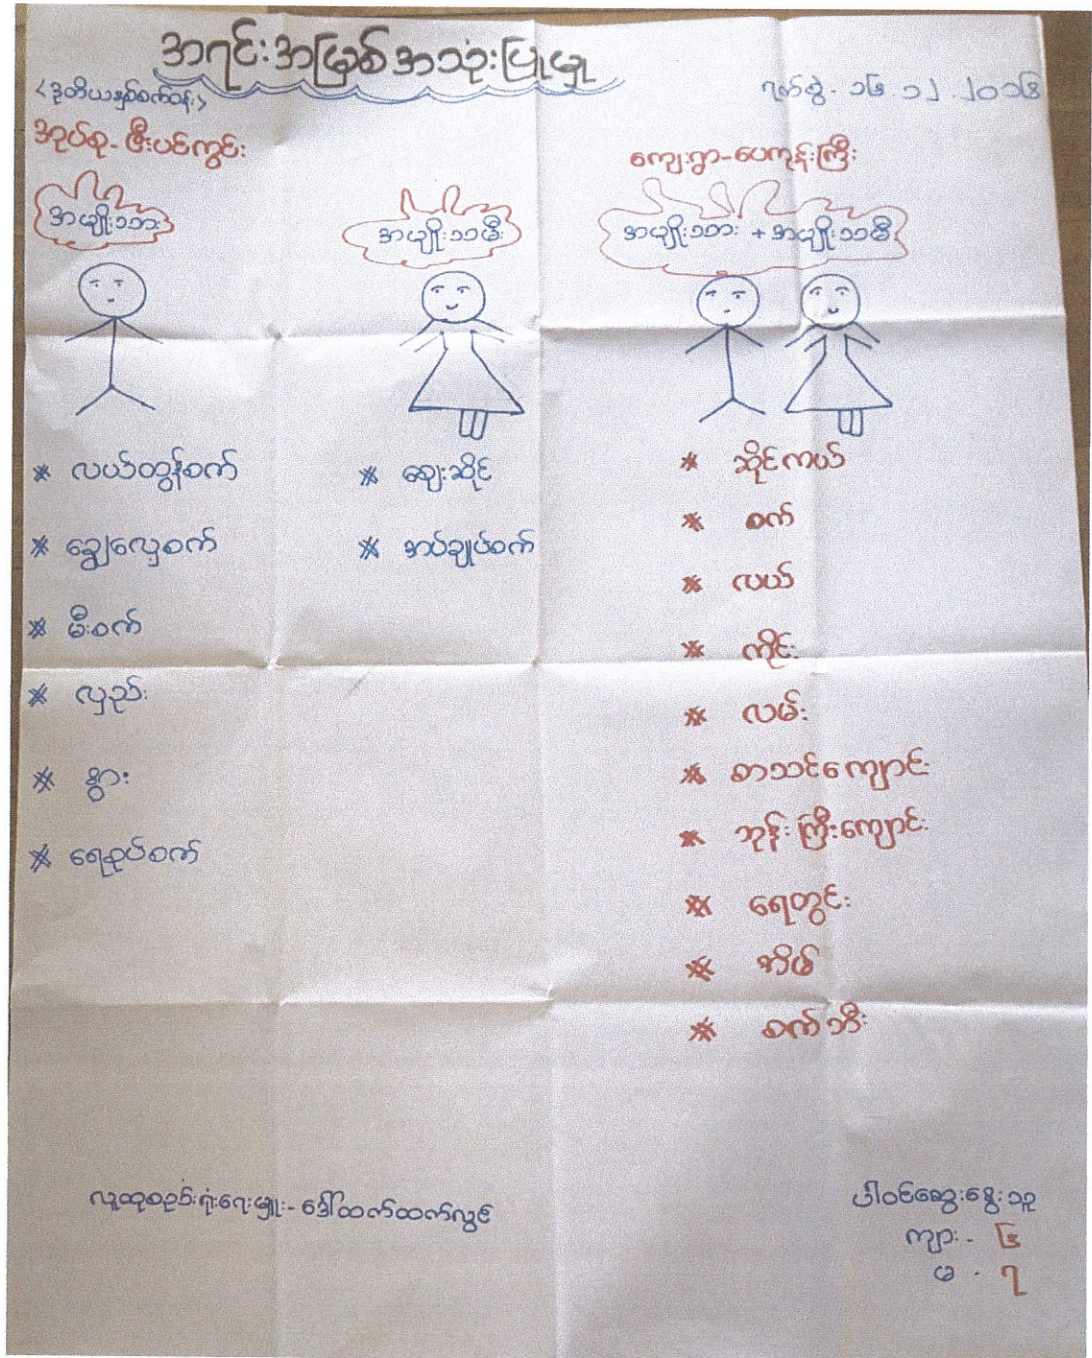 အရင်းအမြစ်အသုံးပြုမှု
<ဒုတိယနှစ်စက်ဝန်း>
ရက်စွဲ - ၁၆ ၁၂ . ၂၀၁၆
အုပ်စု - ဖီးပင်ကွင်း
ကျေးရွာ - ပေကုန်းကြီး
အမျိုးသား
အမျိုးသမီး
အမျိုးသား + အမျိုးသမီး
* လယ်ထွန်စက်
* ချွေလှေ့စက်
* မီးစက်
* လှည်း
* နွား
* ရေစုပ်စက်
* ဈေးဆိုင်
* အပ်ချုပ်စက်
* ဆိုင်ကယ်
* စက်
* လယ်
* ကိုင်း
* လမ်း
* စာသင်ကျောင်း
* ဘုန်းကြီးကျောင်း
* ရေတွင်း
* အိမ်
* စက်ဘီး
လူထုစည်းရုံးရေးမှူး - ဒေါ်ထက်ထက်လွင်
ပါဝင်ဆွေးနွေးသူ
ကျား -
မ - ၇